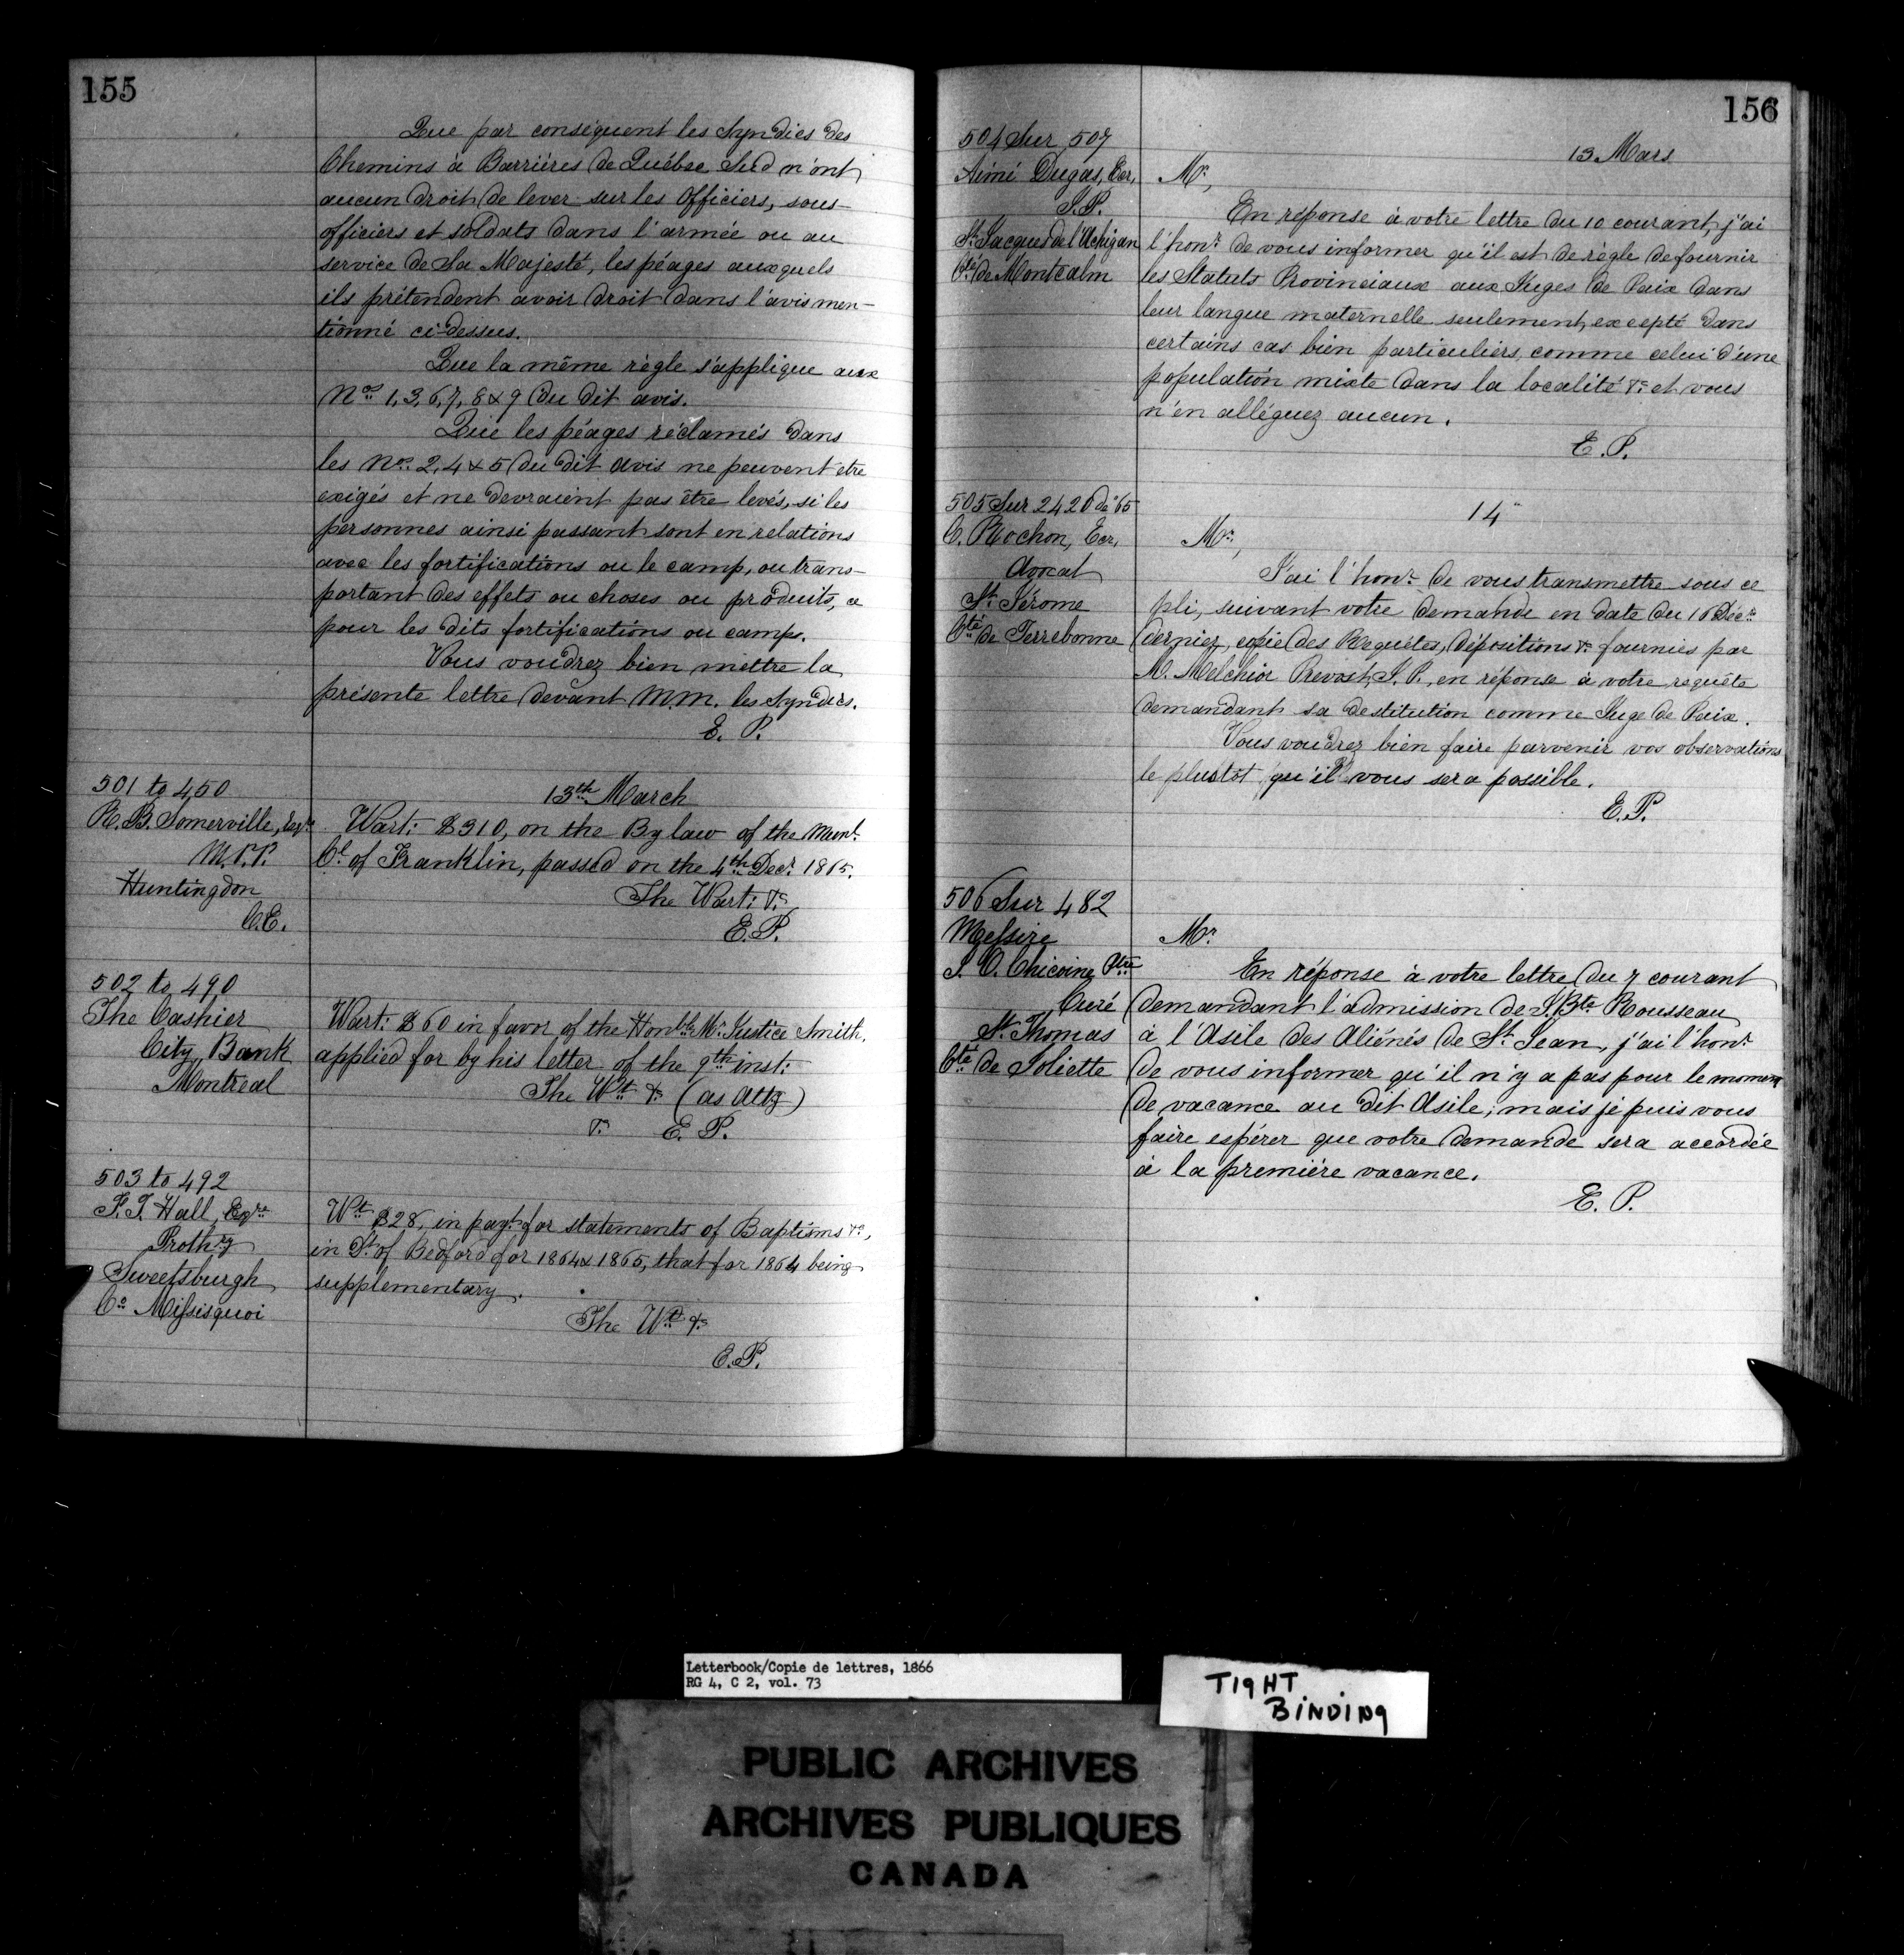 155
Que par conséquent les Syndics des
Chemins à Barrières de Québec Sud n'ont
aucun droit de lever sur les Officiers, sous-
officiers et soldats dans l'armée ou au
service de Sa Majesté, les péages auxquels
ils prétendent avoir droit dans l'avis men-
tionné ci-dessus.
Que la même règle s'applique aux
Nos 1, 3, 6, 7, 8 & 9 du dit avis.
Que les péages réclamés dans
les Nos 2, 4 & 5 du dit avis ne peuvent être
exigés et ne devraient pas être levés, si les
personnes ainsi passant sont en relations
avec les fortifications ou le camp, ou trans-
portant des effets ou choses ou produits,
pour les dits fortifications ou camps.
Vous voudrez bien mettre la
présente lettre devant MM. les Syndics.
E. P.
501 to 450
R. B. Somerville, Esqre
M.P.P.
Huntingdon
C.E.
13th March
Wart: $310, on the By law of the Munl.
Cl. of Franklin, passed on the 4th Decr 1865.
The Wart: &c
E.P.
502 to 490
The Cashier
City Bank
Montreal
Wart: $60 in favor of the Honble Mr Justice Smith,
applied for by his letter of the 9th inst:
The Wt &c (as Atty)
&c E. P.
503 to 492
F. T. Hall, Eqre
Prothy
Sweetsburgh
Co Missisquoi
Wt $28, in payt for statements of Baptisms &c,
in Dt of Bedford for 1864 & 1865, that for 1864 being
supplementary.
The Wt &c
E.P.
156
504 Sur 507
Aimé Dugas, Ecr,
J.P.
St Jacques de l'Achigan
Cté de Montcalm
13 Mars
Mr,
En réponse à votre lettre du 10 courant, j'ai
l'honr de vous informer qu'il est de règle de fournir
les Statuts Provinciaux aux Juges de Paix dans
leur langue maternelle seulement, excepté dans
certains cas bien particuliers, comme celui d'une
population mixte dans la localité &c et vous
n'en alléguez aucun.
E. P.
505 Sur 2420 de '65
C. Rochon, Ecr,
Avocat
St Jérome
Cté de Terrebonne
14 "
Mr,
J'ai l'honr de vous transmettre sous ce
pli, suivant votre demande en date du 16 Décr
dernier, copie des Requêtes, dépositions &c fournies par
M. Melchior Prevost, J. P., en réponse à votre requête
demandant sa destitution comme Juge de Paix.
Vous voudrez bien faire parvenir vos observations
le plustôt qu'il vous sera possible.
E.P.
506 Sur 482
Messire
J. O. Chicoine Ptre
Curé
St Thomas
Cté de Joliette
Mr
En réponse à votre lettre du 7 courant
demandant l'admission de J. Bte Rousseau
à l'Asile des Aliénés de St Jean, j'ai l'honr
de vous informer qu'il n'y a pas pour le moment
de vacance au dit Asile; mais je puis vous
faire espérer que votre demande sera accordée
à la première vacance.
E. P.
Letterbook/Copie de lettres, 1866
RG 4, C 2, vol. 73
TIGHT
BINDING
PUBLIC ARCHIVES
ARCHIVES PUBLIQUES
CANADA